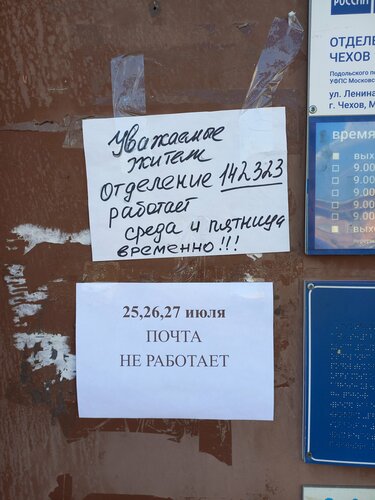 Уважаемые
жители
Отделение 142323
работает
среда и пятница
временно!!!
25,26,27 июля
ПОЧТА
НЕ РАБОТАЕТ
РОССИИ
ОТДЕЛЕ
ЧЕХОВ
Подольского по
УФПС Московс
ул. Ленина
г. Чехов, М
время
вых
9.00
9.00
9.00
9.00
вых